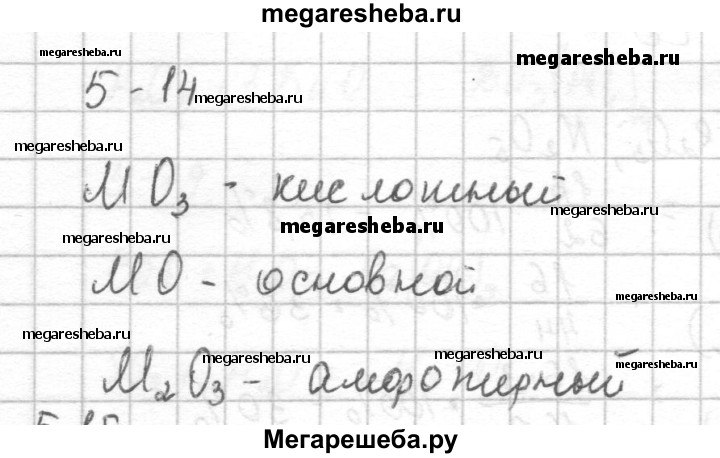 megaresheba.ru
megaresheba.ru
megaresheba.ru
5 - 14 megaresheba.ru
megaresheba.ru
MO₃ - кислотный
megaresheba.ru
megaresheba.ru
megaresheba.ru
MO - основной
megaresheba.ru
megaresheba.ru
megaresheba.ru
megaresheba.ru
megaresheba.ru
M₂O₃ - амфотерный
Мегарешеба.ру